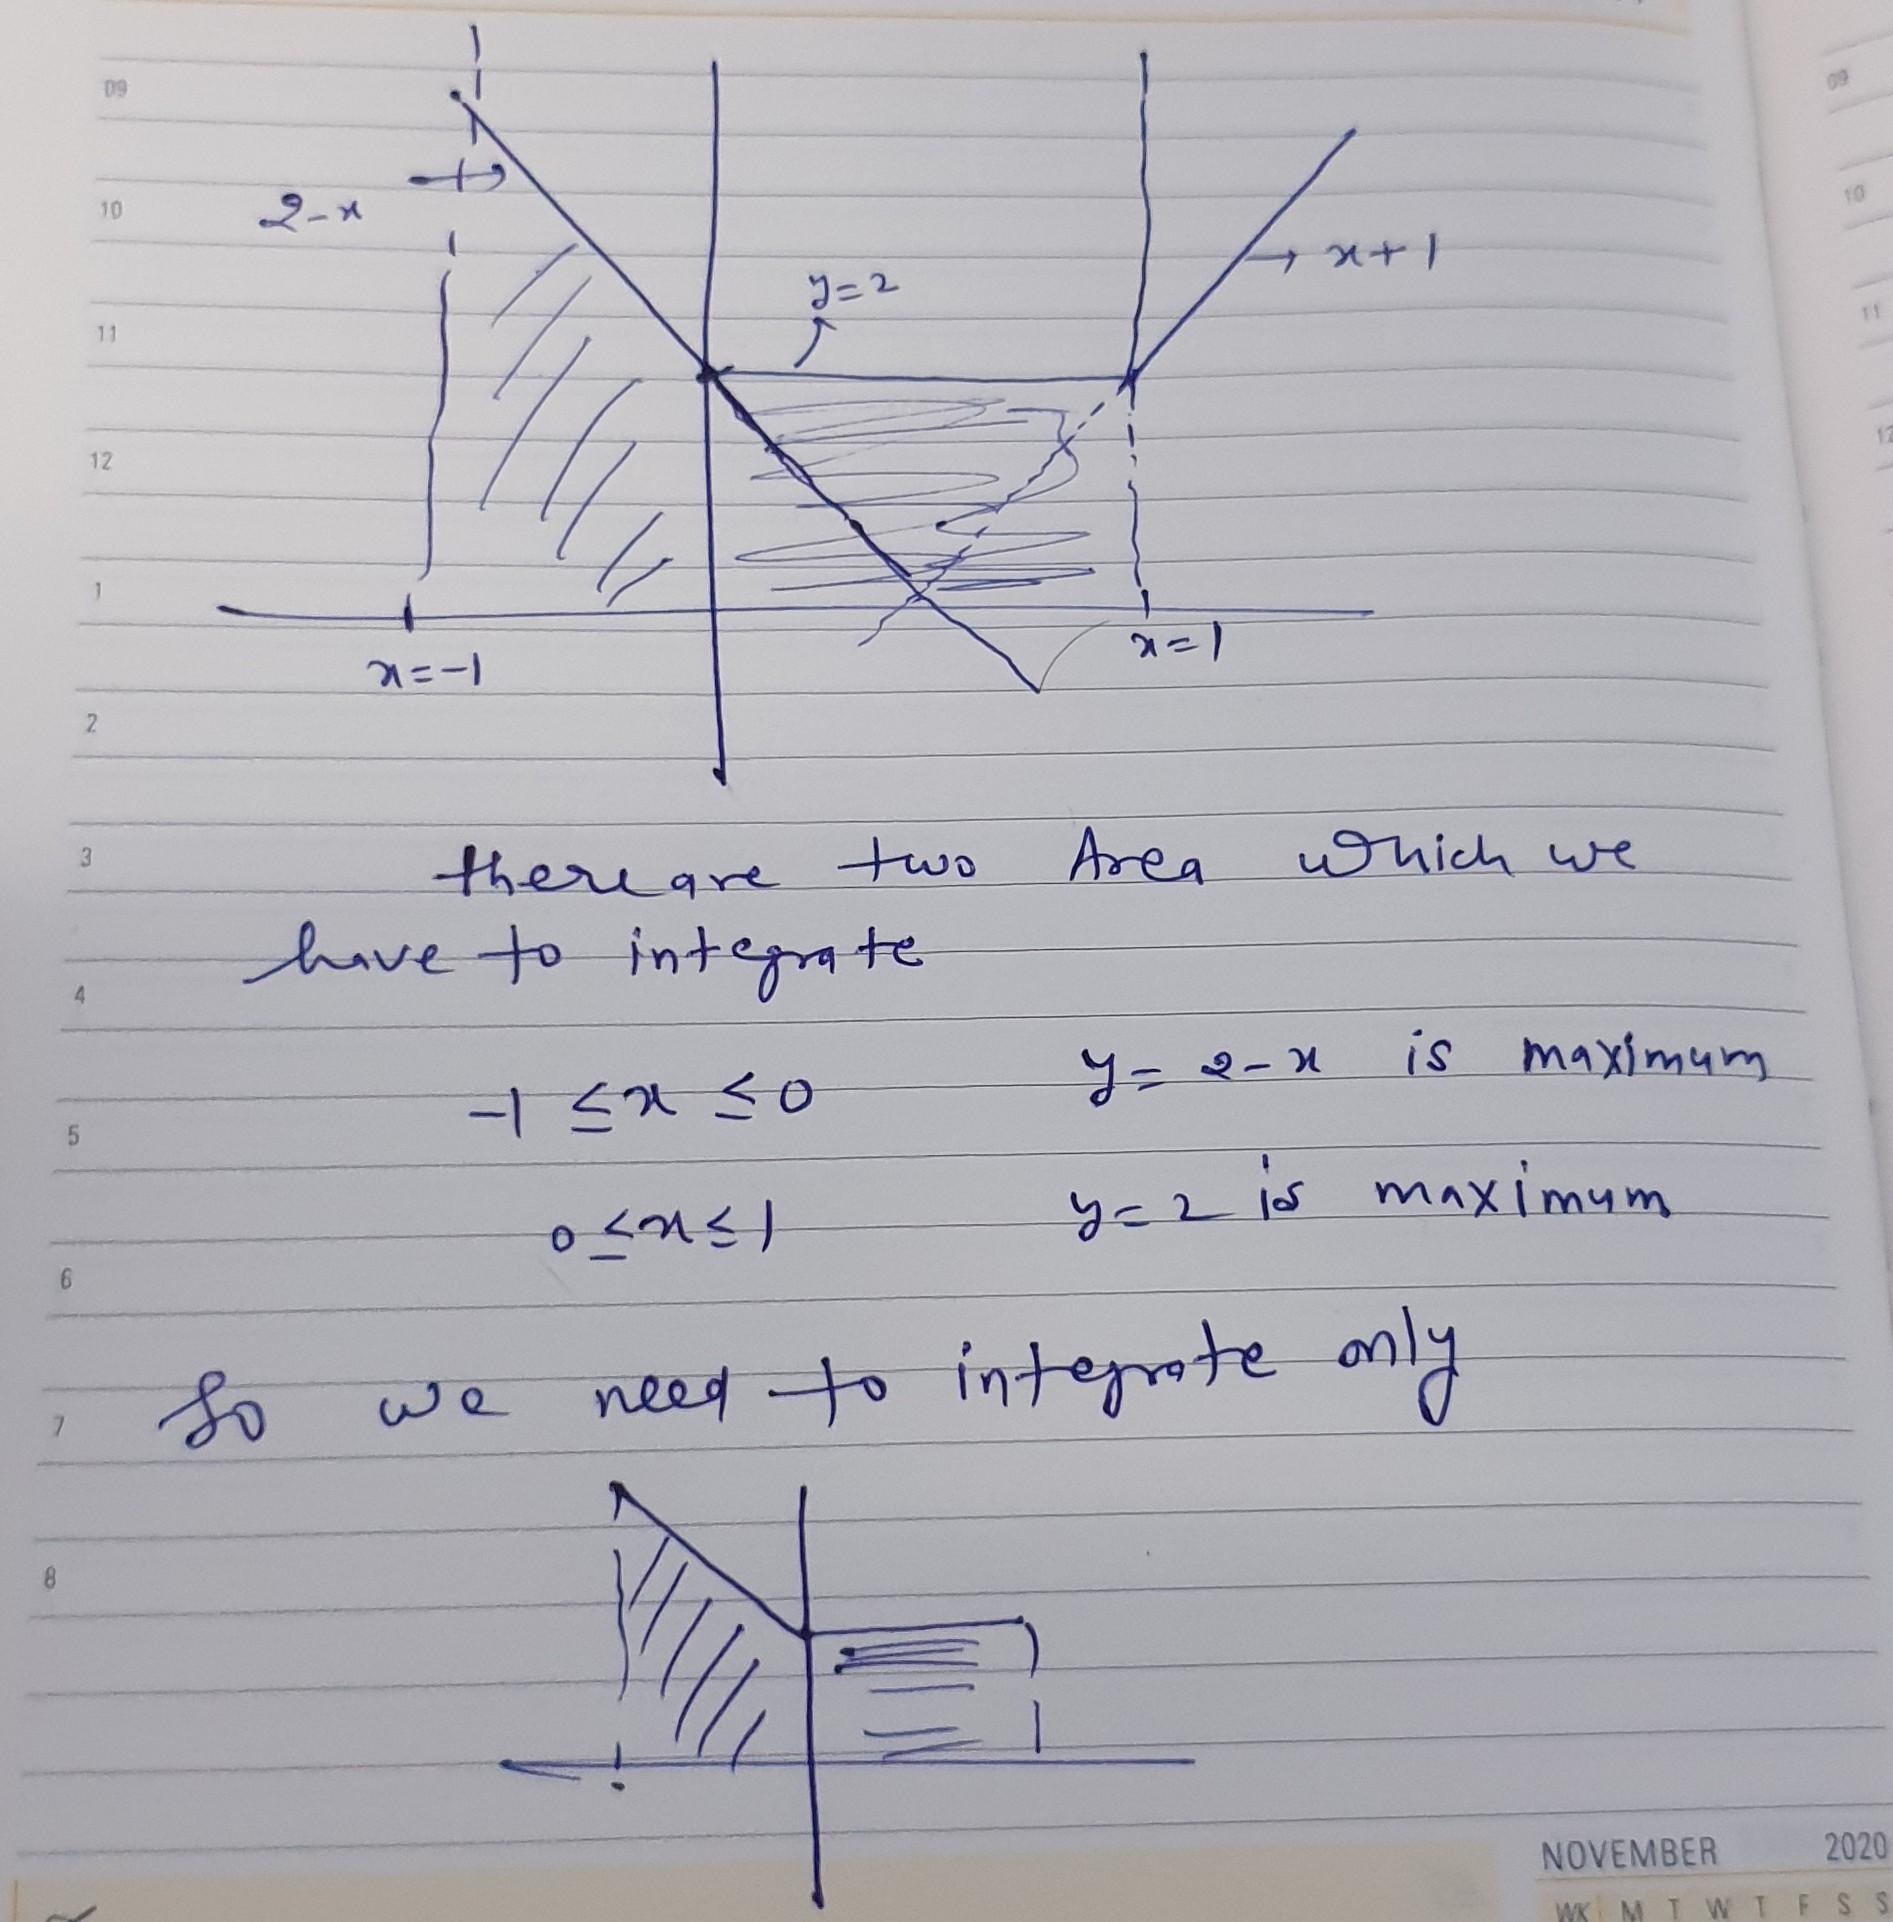 09
09
10
2-x
10
y=2
→ x+1
11
11
12
12
1
x=-1
x=1
2
3
there are two Area which we
have to integrate
4
-1 ≤ x ≤ 0 y = 2-x is maximum
5
0 ≤ x ≤ 1 y = 2 is maximum
6
So we need to integrate only
7
8
NOVEMBER 2020
WK M T W T F S S